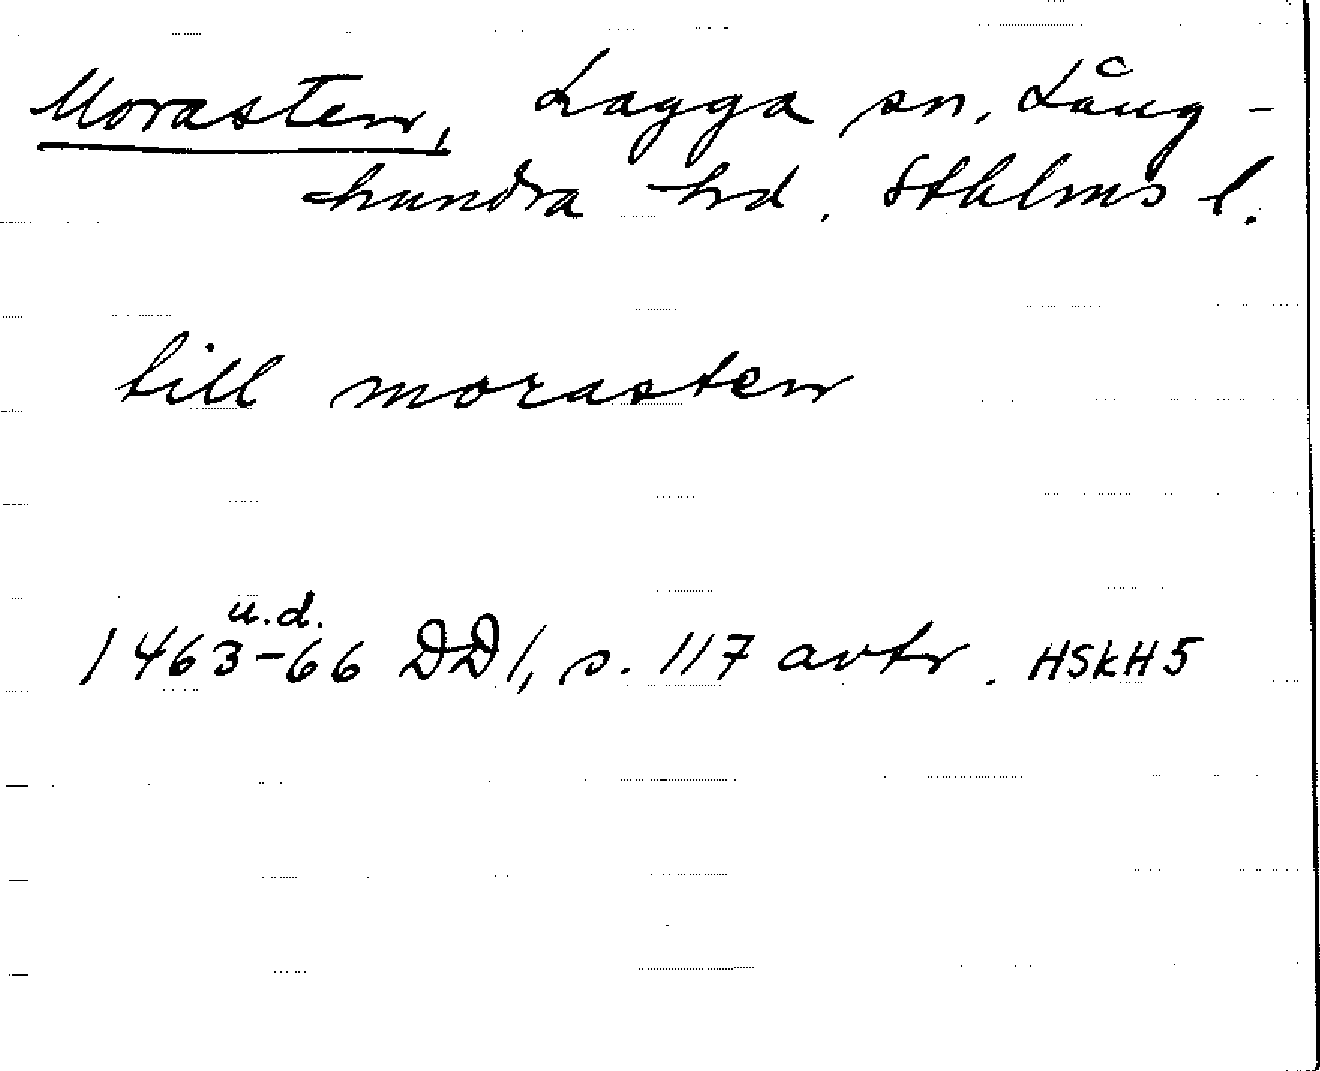 Morasten, Lagga sn, Lång-
hundra hd. Sthlms l.
till morasten
u.d.
1463-66 DD 1, s. 117 avtr. HSkH 5